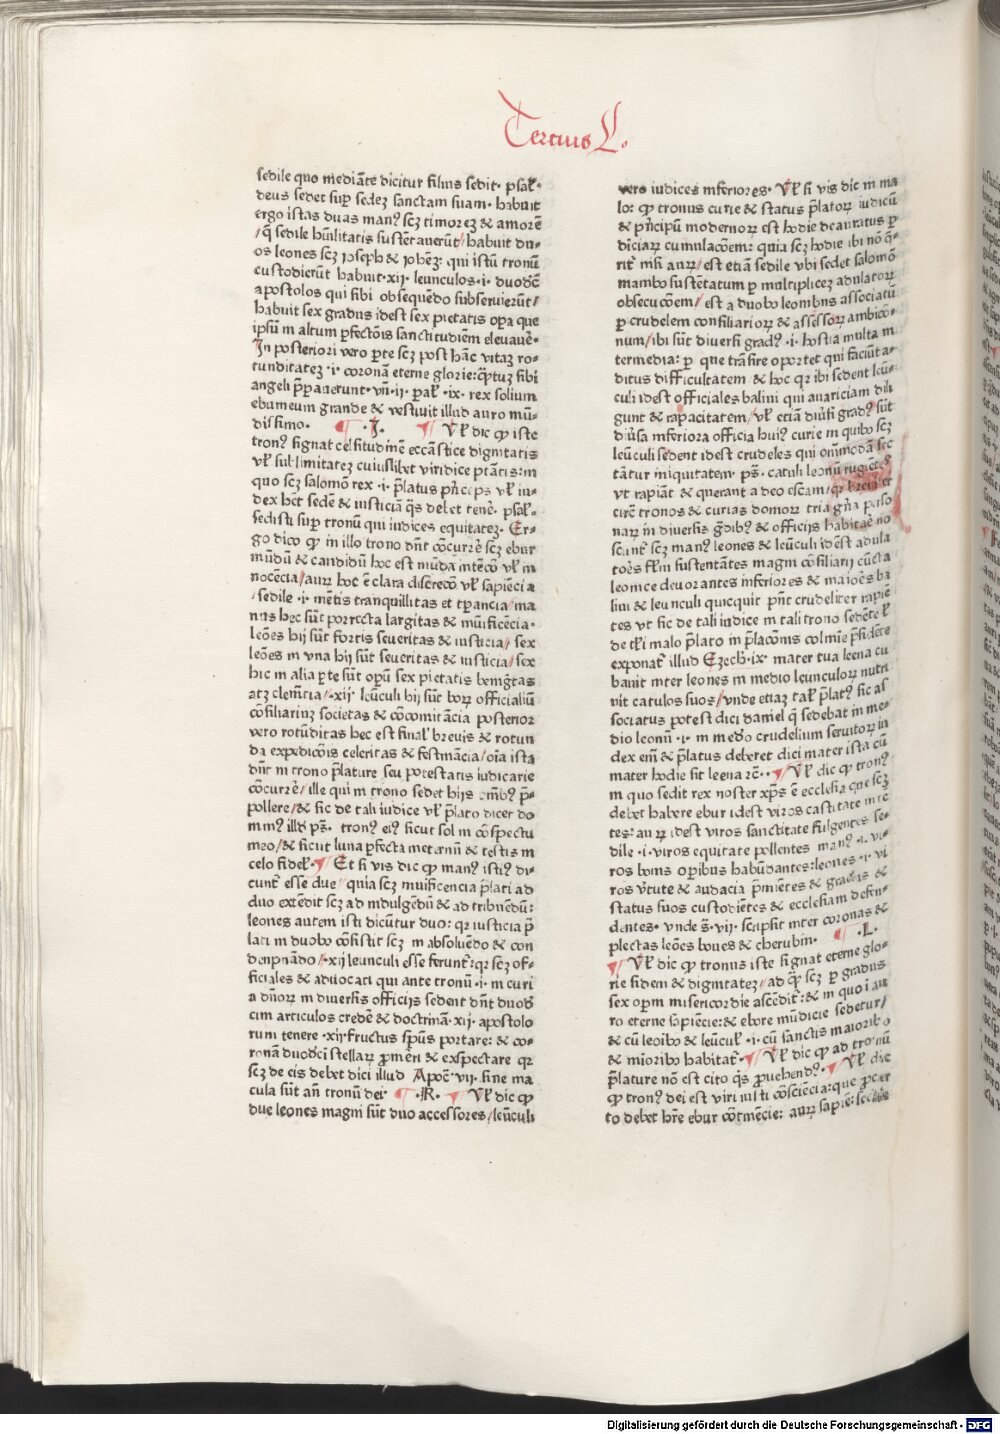 Tercius L.
sedile quo mediãte dicitur filius sedit. psal̃.
deus sedet sup̃ sedeʒ sanctam suam. habuit
ergo istas duas manꝰ scʒ timoreʒ & amorẽ
/q̃ sedile hũilitatis sustẽtauerũt/habuit du-
os leones scʒ ioseph & iohẽʒ: qui istũ tronũ
custodierũt habuit .xij. leunculos .i. duodẽ
apostolos qui sibi obsequẽdo subseruierũt/
habuit sex gradus idest sex pietatis opa que
ipsũ in altum pfectõis sanctitudiẽm eleuauẽ.
In posteriori vero pte scʒ post hãc vitaʒ ro-
tunditateʒ .i. coronã eterne glorie: q̃tuʒ sibi
angeli p̃pauerunt. vñ .ij. pal̃. ix. rex solium
eburneum grande & vestiuit illud auro mũ-
dissimo. ¶ .I. ¶ Vl̃ dic ꝙ iste
tronꝰ signat celsitudinẽ ecc̃astice dignitatis
vl̃ sublimitateʒ cuiuslibet viridice ptãtis: in
quo scʒ salomõ rex .i. p̃latus p̃nceps vl̃ iu-
dex hẽt sedẽ & iusticiã q̃s debet tenẽ. psal̃.
sedisti sup̃ tronũ qui iudices equitateʒ. Er-
go dico ꝙ in illo trono dñt cõcurrẽ scʒ ebur
mũdũ & candidũ hoc est mũda intẽcõ vl̃ in
nocẽcia/auꝝ hoc ẽ clara discrecõ vl̃ sapiẽcia
/sedile .i. mẽtis tranquillitas et tpancia/ma
nus hec sũt porrecta largitas & mũificẽcia.
leões hij sũt fortis seueritas & iusticia/ sex
leões in vna hij sũt seueritas & iusticia/sex
hic in alia pte sũt opũ sex pietatis benig̃tas
atʒ clemẽtia/.xij. leũculi hij sũt boꝝ officialiũ
cõsiliariuꝝ societas & cõcomitãcia posterior
vero rotũditas hec est final̃ breuis & rotun
da expedicõis celeritas & festinãcia/oĩa ista
dñt in trono p̃lature seu potestatis iudicarie
cõcurrẽ/ille qui in trono sedet hijs om̃bꝰ p̃-
pollere/& sic de tali iudice vl̃ p̃lato dicet do
minꝰ illd ps̃. tronꝰ eiꝰ sicut sol in cõspectu
meo/& sicut luna pfecta in eternũ & testis in
celo fidel̃. ¶ Et si vis dic ꝙ manꝰ istiꝰ di-
cunt̃ esse due/ quia scʒ muificencia p̃lati ad
duo extẽdit scʒ ad indulgẽdũ & ad tribuẽdũ:
leones autem isti dicũtur duo: qꝛ iusticia p̃
lati in duobo cõsistit scʒ in absoluẽdo & con
denpnãdo/.xij leunculi esse ferunt̃: qꝛ scʒ of-
ficiales & aduocati qui ante tronũ .i. in curi
a dñoꝝ in diuersis officijs sedent dñt duod̃
cim articulos credẽ & doctrinã .xij. apostolo
rum tenere .xij. fructus spũs portare: & co-
ronã duod̃ci stellaꝝ p̃meri & exspectare qꝛ
scʒ de eis debet dici illud Apoc̃. vij. sine ma
cula sũt añ tronũ dei ¶ .K. ¶ Vl̃ dic ꝙ
due leones magni sũt duo accessores/leũculi
vero iudices inferiores. Vl̃ si vis dic in ma
lo: ꝙ tronus curie & status p̃latoꝝ iudicũ
& p̃ncipũ modernoꝝ est hodie deauratus p
diuiciaꝝ cumulacõem: quia scʒ hodie ibi nõ q̃-
rit̃ nisi auꝝ/est etiã sedile vbi sedet salomõ
mambo sustẽtatum p multipliceʒ adulatoꝝ
obsecucõem/ est a duobo leombns associatũ
p crudelem consiliarioꝝ & assessoꝝ ambico-
num/ibi sũt diuersi gradꝰ .i. hostia multa in
termedia: p que trãsire oportet qui faciũt a-
ditus difficultatem & hoc qꝛ ibi sedent leũ-
culi idest officiales balini qui auariciam dili
gunt & rapacitatem/vl̃ etiã diũsi gradꝰ sũt
diũsa inferiora officia huiꝰ curie in quibo scʒ
leũculi sedent idest crudeles qui om̃modã sec
tãtur iniquitatem. ps̃. catuli leonũ rugiẽtes
vt rapiãt & querant a deo escam/qꝛ
circũ tronos & curias domoꝝ
naꝝ in diuersis g̃dibꝰ & officijs habitaẽ no
scunt̃ scʒ manꝰ leones & leũculi idẽst adula
toẽs fl̃im sustentãtes magni cõsiliarij cũcta
leonice deuorantes inferiores & maioẽs ba
lini & leunculi quicquit pñt crudeliter rapiẽ
tes vt sic de tali iudice in tali trono sedẽte l̃
de tl̃i malo p̃lato in p̃lacõnis colmiẽ p̃sidẽte
exponat̃ illud Ezech̃. ix. mater tua leena cu
bauit inter leones in medio leunculoꝝ nutri
uit catulos suos/vnde etiaʒ tal̃ p̃latꝰ sic as
sociatus potest dici daniel q̃ sedebat in me-
dio leonũ .i. in medio crudelium seruitoꝝ in
dex em̃ & p̃latus deberet dici mater ista cũ
mater hodie sit leena rc̃.. ¶ Vl̃ dic ꝙ tronꝰ
in quo sedit rex noster xp̃s ẽ ecclesia que scʒ
debet habere ebur idest viros castitate nitẽ
tes: auꝝ idest viros sanctitate fulgentes se-
dile .i. viros equitate pollentes manꝰ .i. vi-
ros bonis opibus habũdantes: leones .i. vi
ros ṽtute & audacia p̃minẽtes & gradus &
status suos custodiẽtes & ecclesiam defen-
dentes. vnde s̃. vij. scripsit inter coronas &
plectas leões boues & cherubin. ¶ .L.
¶ Vl̃ dic ꝙ tronus iste signat eterne glo-
rie sidem & dignitateʒ/ad q̃ scʒ p gradus
sex opm misericordie ascẽdit̃: & in quo i au
ro eterne sapiẽcie: & ebore mũdicie sedetur/
& cũ leoibo & leũcul̃ .i. cũ sanctis maioribo
& mioribo habitat̃. ¶ Vl̃ dic ꝙ ad tronũ
p̃lature nõ est cito q̃s prouehendꝰ. ¶ Vl̃ dic
ꝙ tronꝰ dei est viri iusti cõsciẽcia: que p̃cet
to debet hr̃e ebur cõtinẽcie: auꝝ sapiẽ: sedile